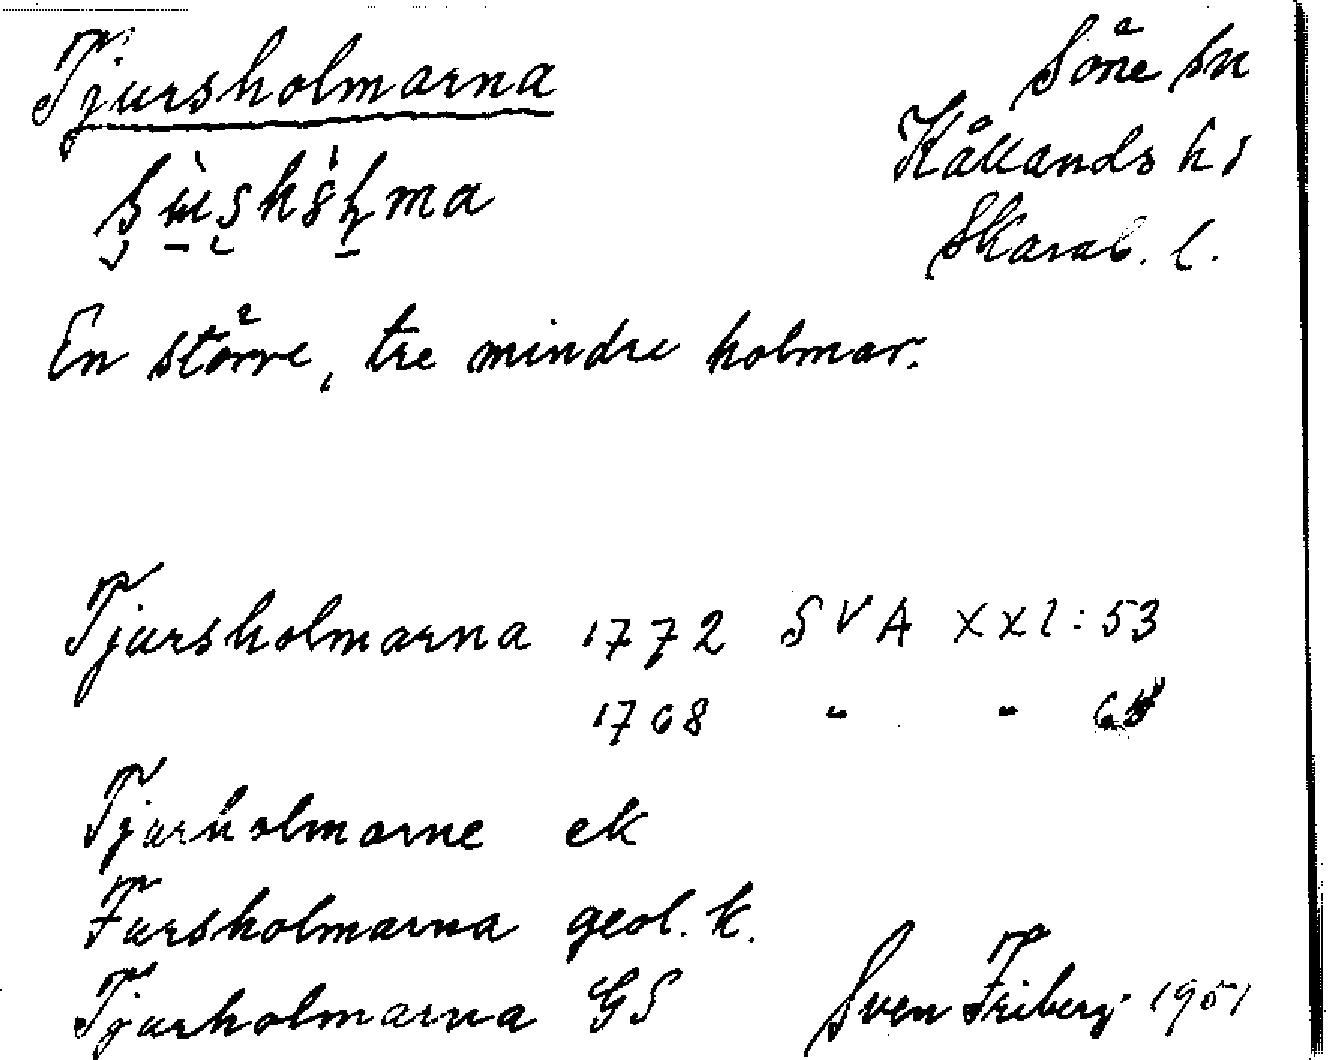 Tjursholmarna
Söne sn
Kållands hd
Skarab. l.
En större, tre mindre holmar.
Tjursholmarna 1772 SVA XXI:53
1708 " "
Tjurholmarne ek
Fursholmarna geol. k.
Tjurholmarna GS
Sven Friberg 1951